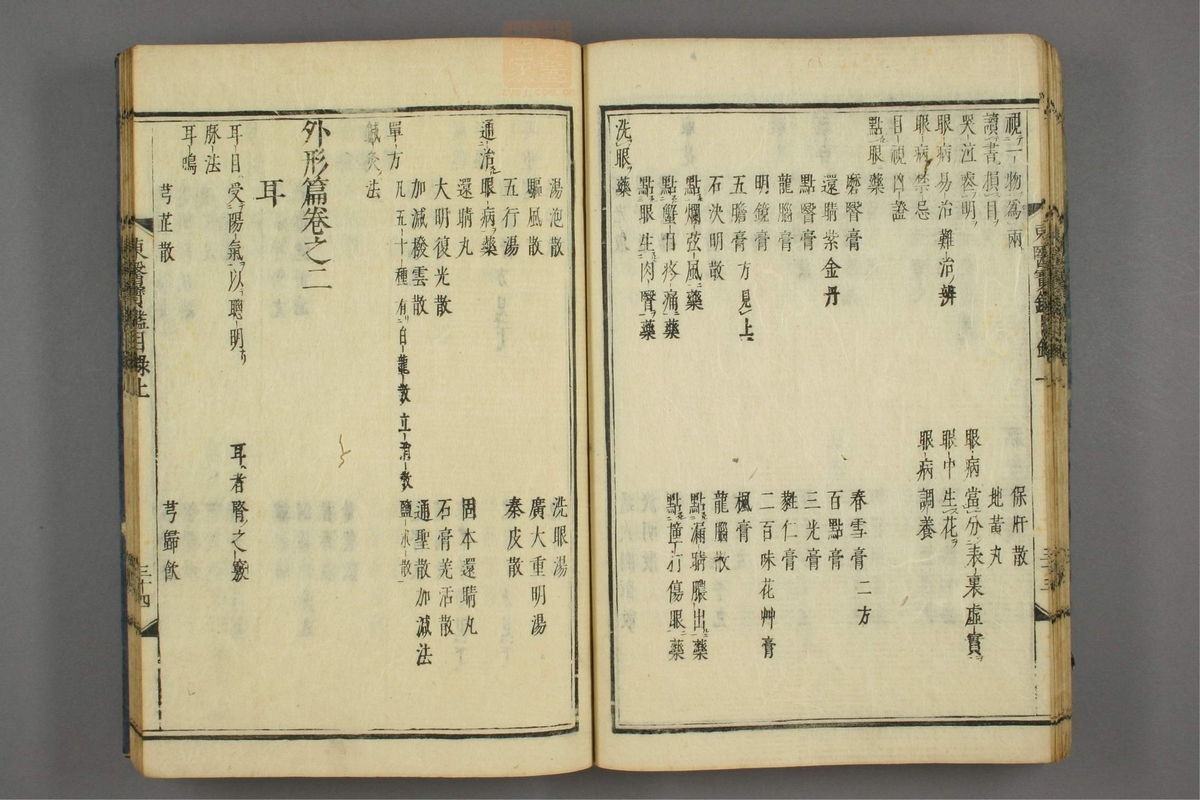 視一物爲兩
保肝散
讀書損目
地黃丸
哭泣喪明
眼病當分表裏虛實
眼病易治難治辨
眼中生花
眼病禁忌
眼病調養
目視凶證
點眼藥
磨瞖膏
春雪膏二方
還睛紫金丹
百點膏
點瞖膏
三光膏
龍腦膏
蕤仁膏
明鏡膏
二百味花艸膏
五膽膏方見上
楓膏
石決明散
龍腦散
點爛弦風藥
點漏睛膿出藥
點蟹目疼痛藥
點撞打傷眼藥
點眼生肉瞖藥
洗眼藥
湯泡散
洗眼湯
驅風散
廣大重明湯
五行湯
秦皮散
通治眼病藥
還睛丸
固本還睛丸
大明復光散
石膏羌活散
加減撥雲散
通聖散加減法
單方
凡五十種有白龍散立消散鹽朮散
鍼灸法
外形篇卷之二
耳
耳目受陽氣以聰明
耳者腎之竅
脉法
耳鳴
芎芷散
芎歸飮
東醫寶鑑目錄上
三十四